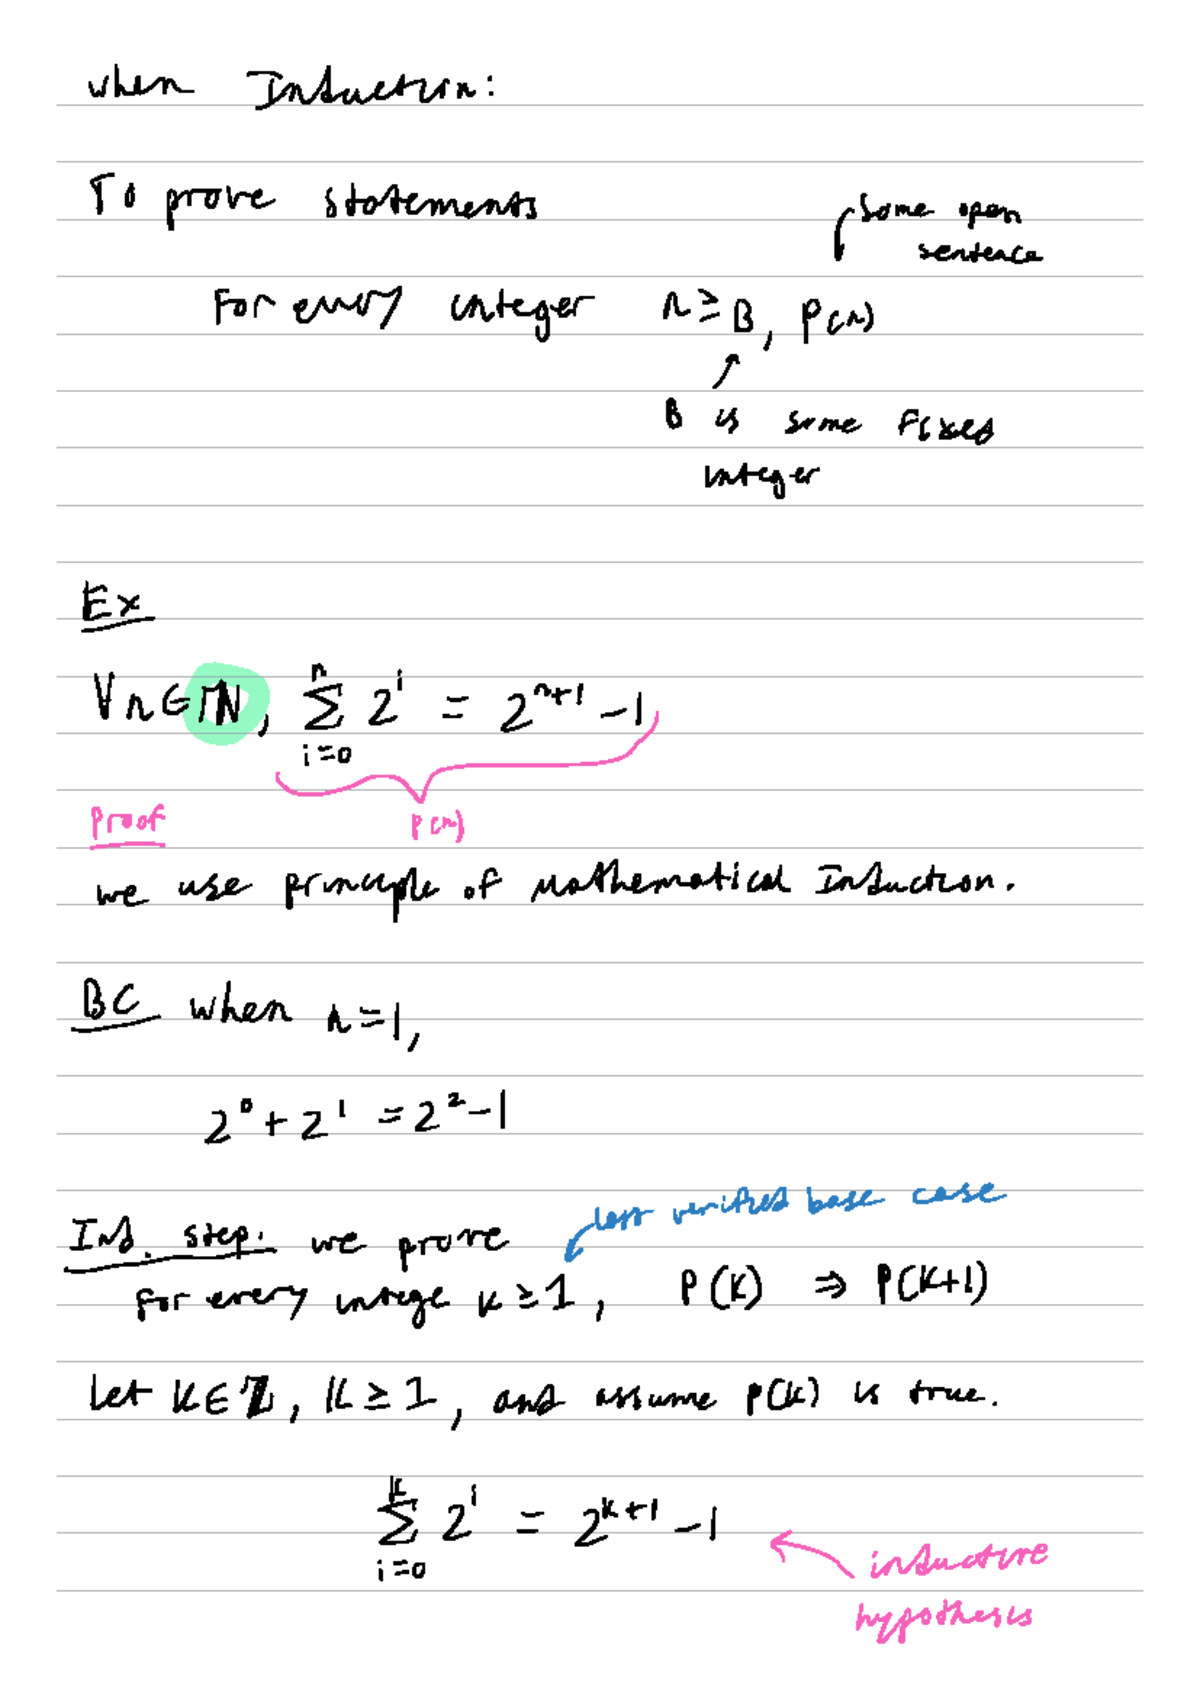 when Induction:
To prove statements
some open
sentence
For every integer n ≥ B, P(n)
B is some fixed
integer
Ex
∀n∈ℕ, \sum_{i=0}^{n} 2^i = 2^{n+1} - 1
Proof
P(n)
we use principle of Mathematical Induction.
BC when n=1,
2^0 + 2^1 = 2^2 - 1
last verified base case
Ind. step. we prove
for every intege k ≥ 1, P(k) ⇒ P(k+1)
Let k∈ℤ, k ≥ 1, and assume P(k) is true.
\sum_{i=0}^{k} 2^i = 2^{k+1} - 1
inductive
hypothesis